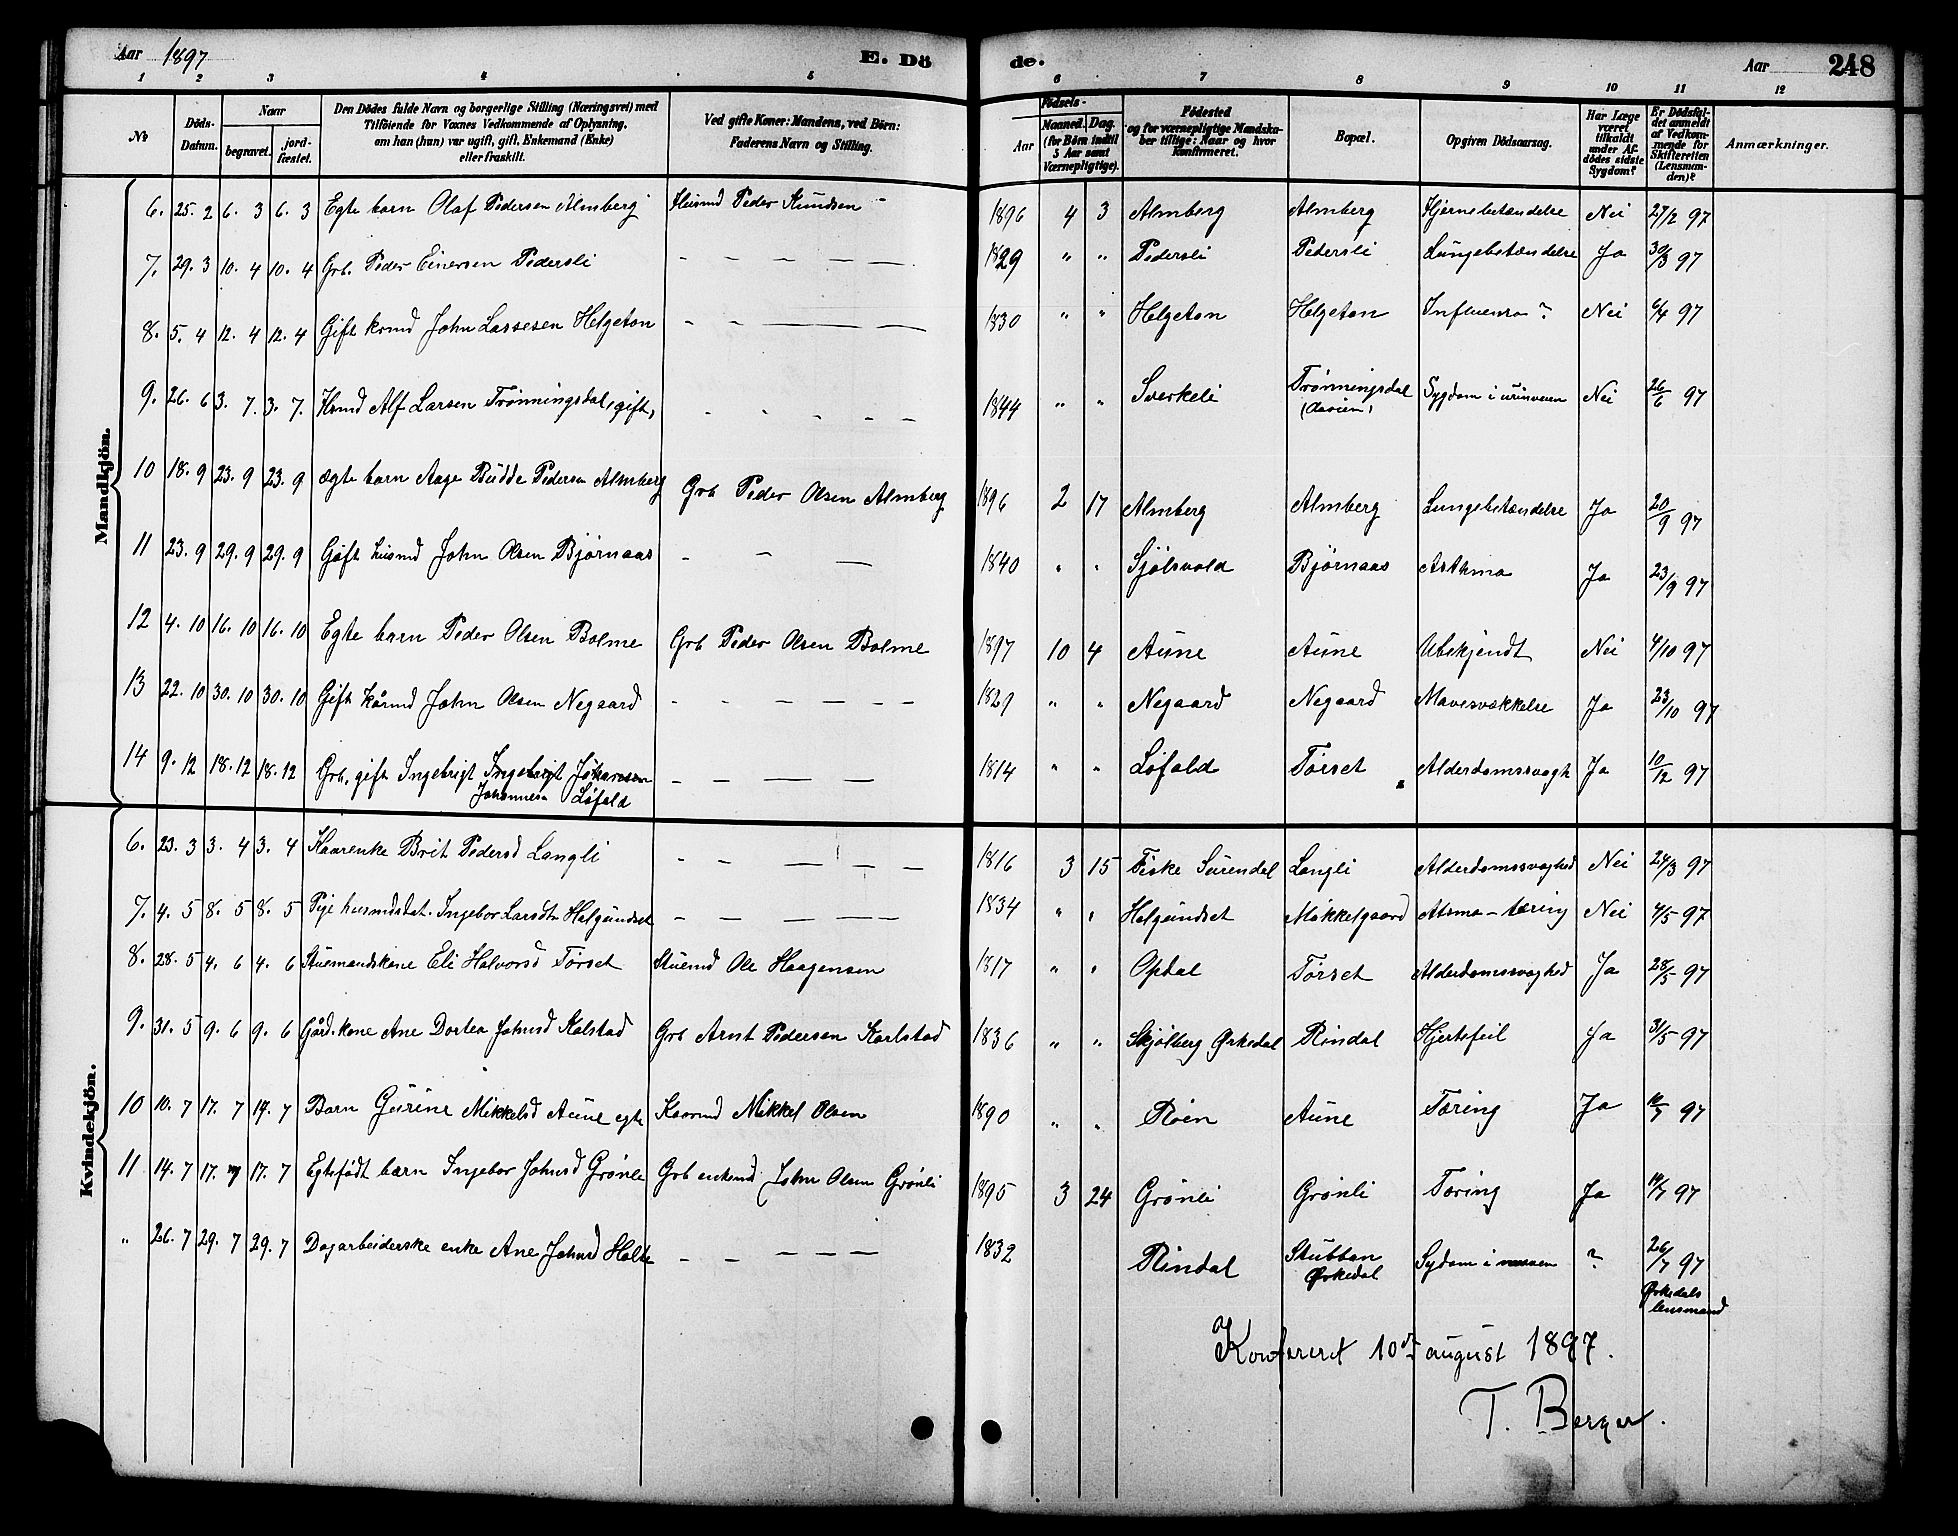 Aar 1897 E. Dö de. Aar 248
1 2 3 4 5 6 7 8 9 10 11 12
No
Döds-Datum.
Naar
begravet.
jord-fæstet.
Den Dödes fulde Navn og borgerlige Stilling (Næringsvei) med
Tilföiende for Voxnes Vedkommende af Oplysning,
om han (hun) var ugift, gift, Enkemand (Enke)
eller fraskilt.
Ved gifte Koner: Mandens, ved Börn:
Faderens Navn og Stilling.
Födsels-
Aar
Maaned. Dag.
(for Börn indtil
5 Aar samt
Værnepligtige).
Födested
og for værnepligtige Mandska-
ber tillige: Naar og hvor
Konfirmeret.
Bopæl.
Opgiven Dödsaarsag.
Har Læge
været
tilkaldt
under Af-
dödes sidste
Sygdom?
Er Dödsfal-
det anmeldt
af Vedkom-
mende for
Skifteretten
(Lensman-
den)?
Anmærkninger.
Mandkjön.
6. 25. 2 6. 3 6. 3 Egte barn Olaf Pedersen Almberg Husmd Peder Knudsen 1896 4 3 Almberg Almberg Hjernebetændelse Nei 27/2 97
7. 29. 3 10. 4 10. 4 Grb. Peder Einersen Pedersli — — — — — 1829 " " Pedersli Pedersli Lungebetændelse Ja 30/3 97
8. 5. 4 12. 4 12. 4 Gift kmd John Lassesen Helgeton — — — — — 1830 " " Helgeton Helgeton Influensa ? Nei 6/4 97
9. 26. 6 3. 7. 3. 7. Hsmd Alf Larsen Trönningsdal, gift, - - - - - 1844 " " Sverkeli Trönningsdal Sygdom i urinveien Nei 26/6 97
10 18. 9 23. 9 23. 9 ægte barn Aage Budde Pedersen Almberg Grb Peder Olsen Almberg 1896 2 17 Almberg Almberg Lungebetændelse Ja 20/9 97
11 23. 9 29. 9 29. 9 Gift husmd John Olsen Bjørnaas - - — 1840 " " Sjølsvold Bjørnaas Asthma Ja 23/9 97
12 4. 10 16. 10 16. 10 Egte barn Peder Olsen Bolme Grb Peder Olsen Bolme 1897 10 4 Aune Aune Ubekjendt Nei 4/10 97
13 22. 10 30. 10 30. 10 Gift kårmd John Olsen Negaard - - — — - - 1829 " " Negaard Negaard Mavesvækkelse Ja 23/10 97
14 9. 12 18. 12 18. 12 Grb. gift Ingebrigt Ingebrigt Johansen — — — — 1814 " " Løfald Tørset Alderdomssvagh Ja 10/12 97
Johannesen Løfald
Kvindekjön.
6. 23. 3 3. 4 3. 4 Kaarenke Brit Pedersd Langli - - — — — 1816 3 15 Fiske Surendal Langli Alderdomssvaghed Nei 24/3 97
7. 4. 5 8. 5 8. 5 Pige husmdsdat. Ingebor Larsdt Helgundset — — — — 1834 " " Helgundset Mikkelgaard Atsma - tæring Nei 4/5 97
8. 28. 5 4. 6 4. 6 Stuemandskone Eli Halvorsd Tørset Stuemd Ole Haagensen 1817 " " Opdal Tørset Alderdomssvaghed Ja 28/5 97
9. 31. 5 9. 6 9. 6 Gård.kone Ane Dortea Johnsd Kalstad Grb Arnt Pedersen Karlstad 1836 " " Skjølberg Ørkedal Rindal Hjertefeil Ja 31/5 97
10 10. 7 17. 7 17. 7 Barn Gurine Mikkelsd Aune egte Kaarmd Mikkel Olsen 1890 " " Röen Aune Tæring Ja 10/7 97
11 14. 7 17. 7 17. 7 Egtefødt barn Ingebor Johnsd Grönli Grb enkemd John Olsen Grönli 1895 3 24 Grönli Grönli Tæring Ja 14/7 97
" 26. 7 29. 7 29. 7 Dagarbeiderske enke Ane Johnsd Holte - — — — — 1832 Rindal Stubban Sydom i ? 26/7 97
Ørkedal Ørkedals
lensmand
Konfereret 10de august 1897.
T. Berger.